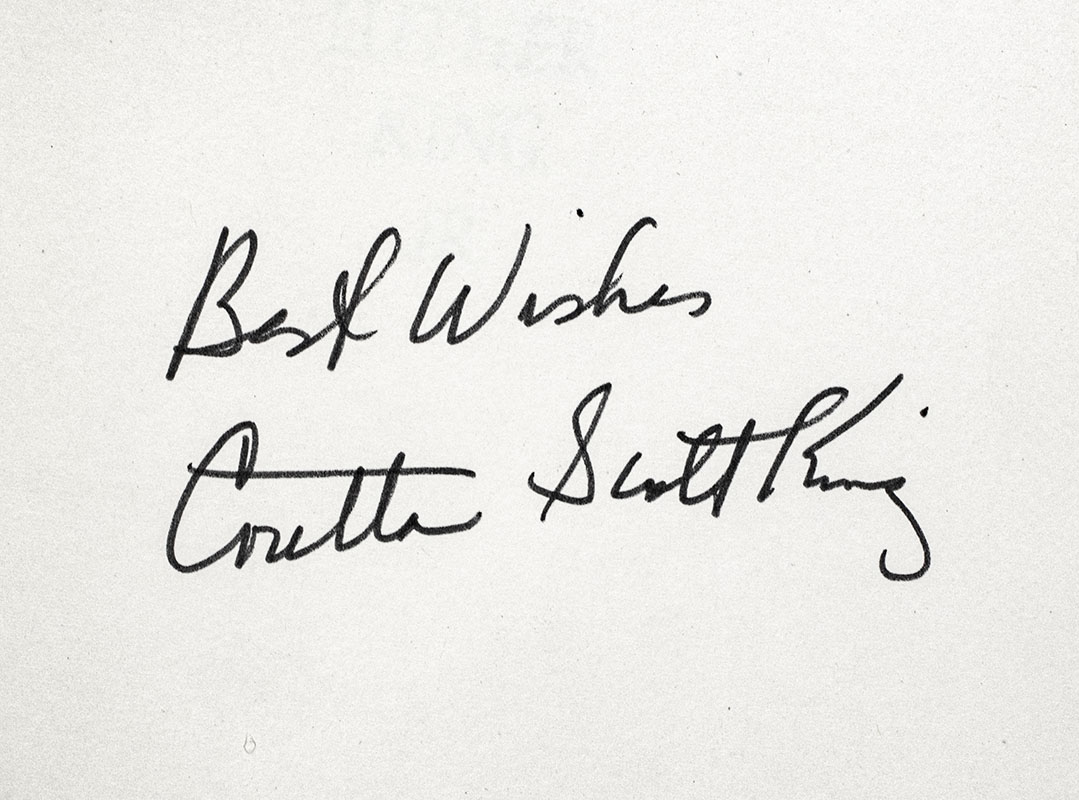 Best Wishes
Coretta Scott King